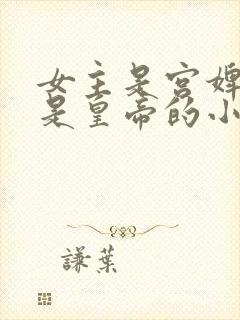 女主是宫婢
是皇帝的小
謙葉